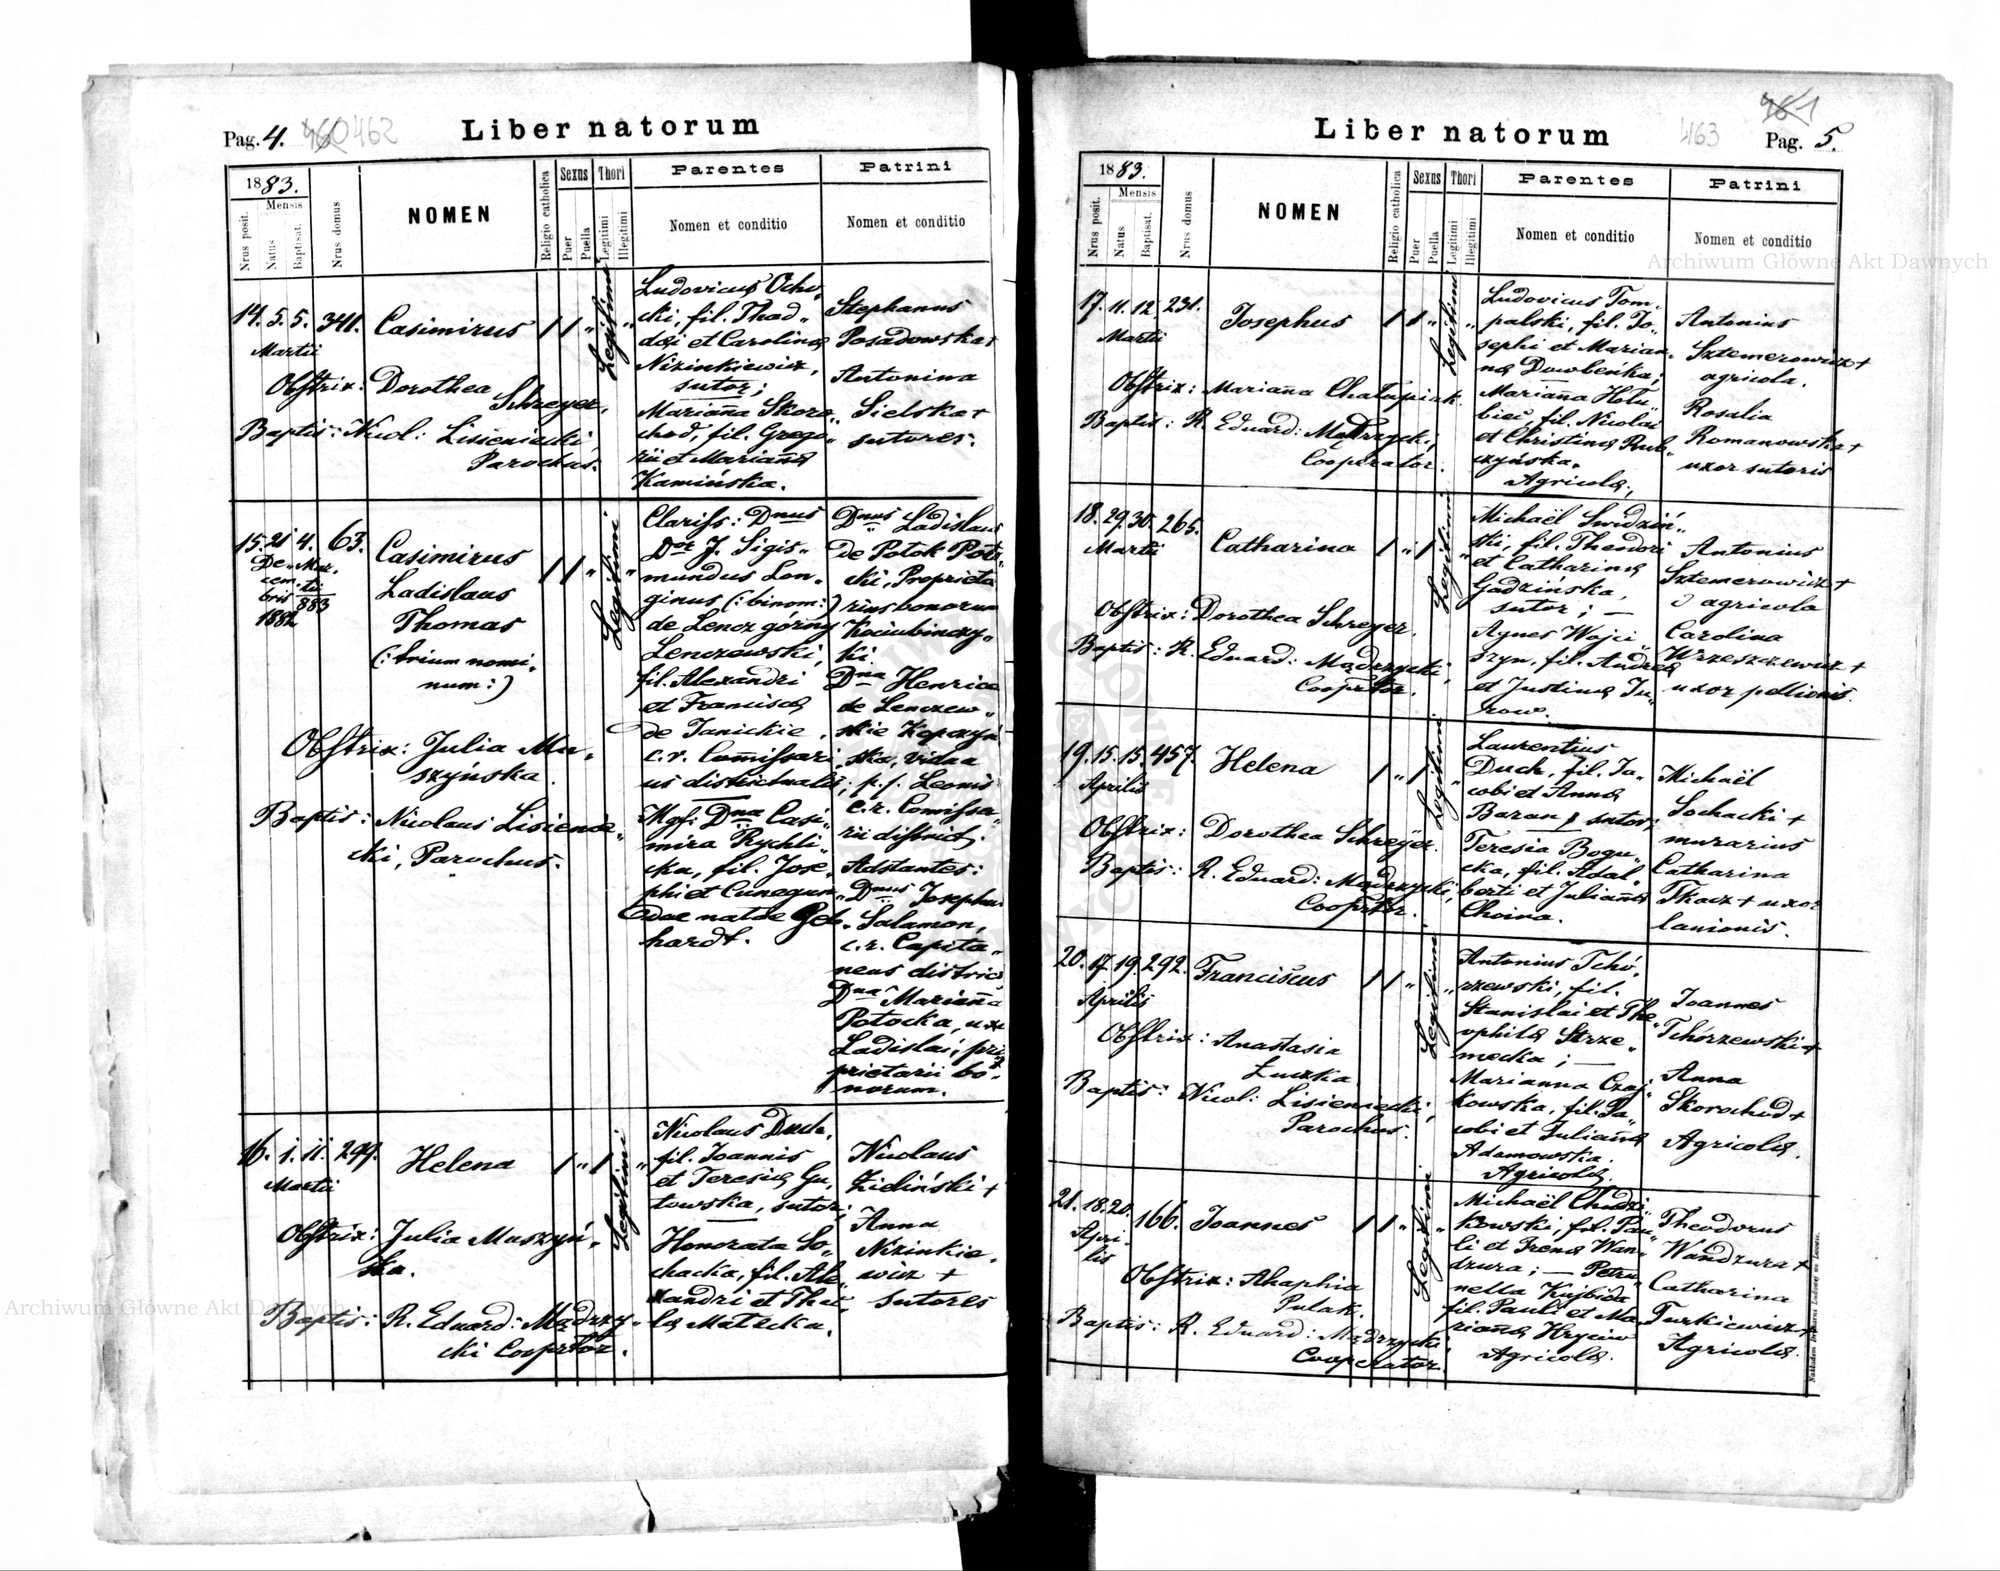 Pag. 4. 462
Liber natorum
1883.
Mensis
Nrus posit.
Natus
Baptisat.
Nrus domus
NOMEN
Religio catholica
Sexus
Puer
Puella
Thori
Legitimi
Illegitimi
Parentes
Nomen et conditio
Patrini
Nomen et conditio
14. 5. 5. 341. Casimirus
Martii
Obstrix: Dorothea
Schreyer.
Baptis: Nicol: Lisieniecki
Parochus.
Legitimi
Ludovicus Ocho„
cki, fil. Thad„
däi et Carolina
Nizinkiewicz,
sutor;
Marianna Skoro„
chod, fil. Grego„
rii et Marianna
Kamińska.
Stephanus
Posadowska+
Antonina
Sielska+
sutores.
15. 21 4. 63. Casimirus
De„ Mar„
cem„ tii
bris 883
1882
Ladislaus
Thomas
(:trium nomi„
num:)
Obstrix: Julia Mu„
szyńska.
Baptis: Nicolaus Lisienie„
cki, Parochus.
Legitimi
Clariss: Dnus
Dor J. Sigis„
mundus Lon„
ginus (:binom:)
de Lencz górny
Lenczewski,
fil. Alexandri
et Francisca
de Janickie,
c.r. Commissari„
us districtualis;
Mgf: Dna Casi„
mira Rychli„
cka, fil. Jose„
phi et Cunegun„
dae natae Geb„
hardt.
Dnus Ladislaus
de Potok Poto
cki, Proprieta
rius bonorum
Kociubinczy„
ki.
Dna Henrica
de Lenczew„
skie Kopczyń
ska, vidua
p. f. Leonis
c.r. Comissa„
rii district.
Adstantes:
Dnus Josephus
Salamon,
c.r. Capita„
neus district
Dna Marianna
Potocka, uxor
Ladislai, pro
prietarii bo„
norum.
16. 1. 11. 299. Helena
Martii
Obstrix: Julia Muszyń„
ska.
Baptis: R. Eduard: Mądrzy„
cki Cooprtor.
Legitimi
Nicolaus Duch,
fil. Joannis
et Teresia Gu„
towska, sutor;
Honorata So„
chacka, fil. Ale„
xandri et Thec„
la Matecka.
Nicolaus
Zieliński+
Anna
Nizinkie„
wicz +
sutores
Liber natorum
463
Pag. 5.
1883.
Mensis
Nrus posit.
Natus
Baptisat.
Nrus domus
NOMEN
Religio catholica
Sexus
Puer
Puella
Thori
Legitimi
Illegitimi
Parentes
Nomen et conditio
Patrini
Nomen et conditio
17. 11. 12. 231. Josephus
Martii
Obstrix: Marianna Chałupiak.
Baptis: R. Eduard: Mądrzycki,
Cooperator.
Legitimi
Ludovicus Tom„
palski, fil. Jo„
sephi et Marian„
na Dowbenka;
Marianna Hołu„
biec, fil. Nicolai
et Christina Rub„
czyńska.
Agricola;
Antonius
Sztemerowicz+
agricola.
Rosalia
Romanowska+
uxor sutoris
18. 29. 30. 265. Catharina
Martii
Obstrix: Dorothea Schreyer.
Baptis: R. Eduard: Mądrzycki,
Cooprtor.
Legitimi
Michaël Swidziń„
ski, fil. Theodori
et Catharina
Gadzińska,
sutor; —
Agnes Wojci„
szyn, fil. Andrea
et Justina Tu„
row.
Antonius
Sztemerowicz+
agricola
Carolina
Wrzeszczewicz+
uxor pellionis.
19. 15. 15. 457. Helena
Aprilis
Obstrix: Dorothea Schreyer.
Baptis: R. Eduard: Mądrzycki,
Cooprtor.
Legitimi
Laurentius
Duch, fil. Ja„
cobi et Anna
Baran, sutor;
Teresia Bogu„
cka, fil. Adal„
berti et Julianna
Choina.
Michaël
Sochacki+
murarius
Catharina
Tkacz+ uxor
lanionis.
20. 17. 19. 292. Franciscus
Aprilis
Obstrix: Anastasia
Łuczka
Baptis: Nicol: Lisieniecki,
Parochus.
Legitimi
Antonius Tchó„
rzewski, fil.
Stanislai et The„
ophila Skrze„
mecka; —
Marianna Czaj„
kowska, fil. Ja„
cobi et Julianna
Adamowska.
Agricola.
Joannes
Tchórzewski+
Anna
Skorochod+
Agricola.
21. 18. 20. 166. Joannes
Apri„
lis
Obstrix: Ahaphia
Pulak.
Baptis: R. Eduard: Mądrzycki,
Cooperator.
Legitimi
Michaël Chudzi„
kowski, fil. Pau„
li et Irena Wan„
dzura; — Petro„
nella Kujbida
fil. Pauli et Ma„
rianna Hryciw
Agricola.
Theodorus
Wandzura+
Catharina
Turkiewicz+
Agricola.
Archiwum Główne Akt Dawnych
Archiwum Główne Akt Dawnych